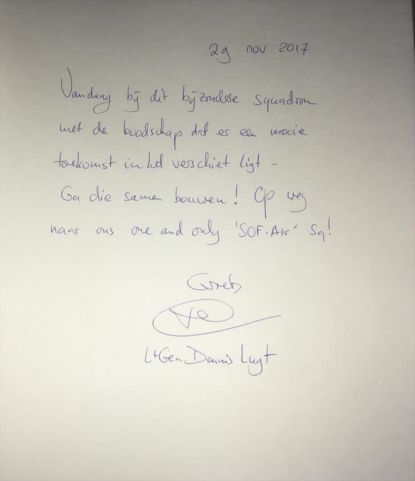 29 nov 2017
Vandaag bij dit bijzondere squadron
met de boodschap dat er een mooie
toekomst in het verschiet ligt -
Ga die samen bouwen! Op weg
naar ons one and only 'SOF-Air' Sq!
Groets
LtGen. Dennis Luyt